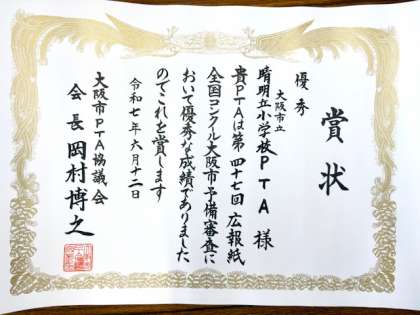 賞状
優秀
大阪市立
晴明丘小学校PTA様
貴PTAは第四十七回広報紙
全国コンクール大阪市予備審査に
おいて優秀な成績でありました
のでこれを賞します
令和七年六月十二日
大阪市PTA協議会
会長 岡村博之